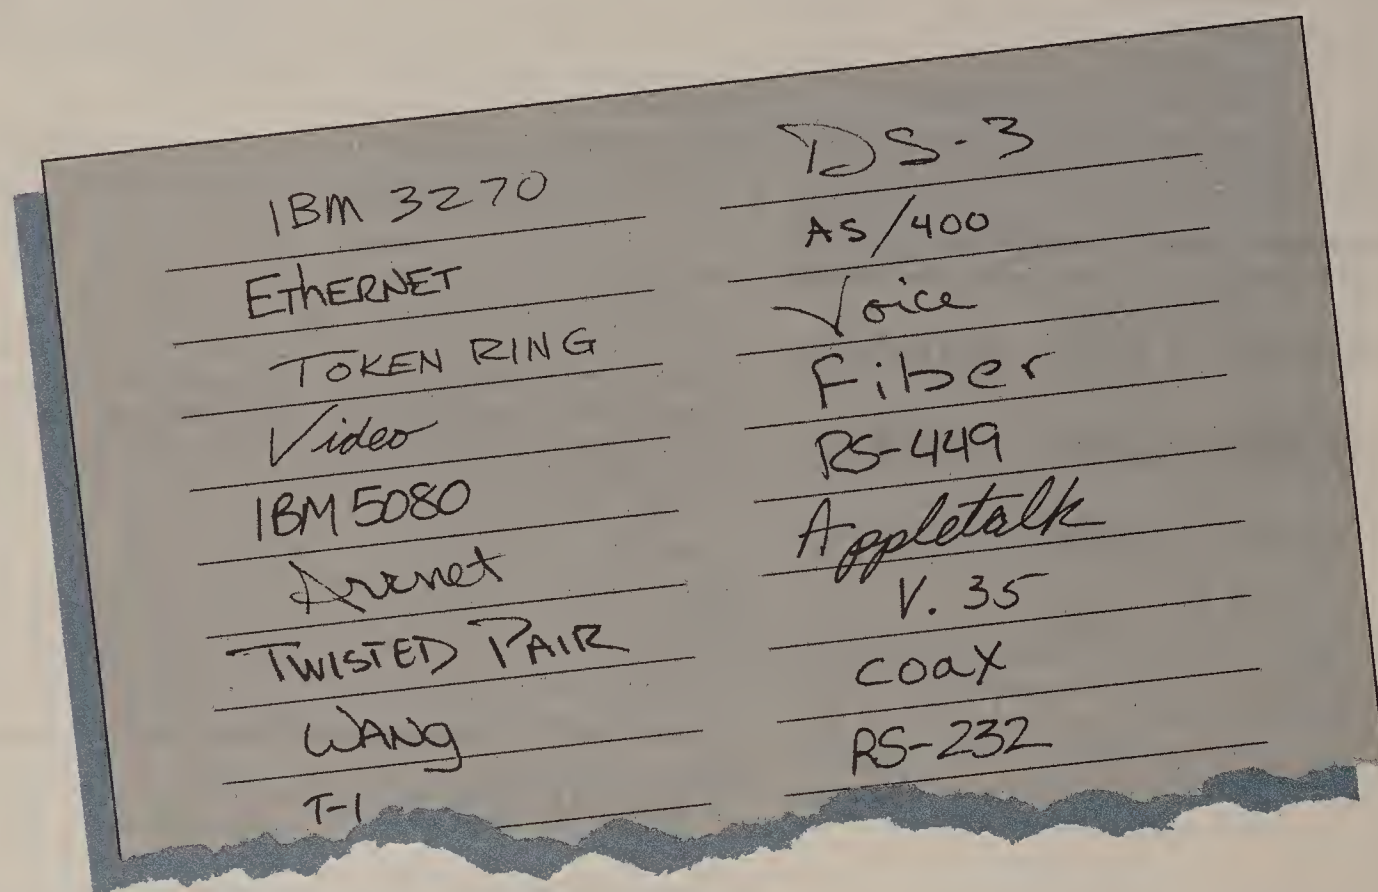 IBM 3270
EThERNET
TOKEN RING
Video
IBM 5080
Arcnet
TWISTED PAIR
WANg
T-1
DS-3
AS/400
Voice
Fiber
RS-449
Appletalk
V. 35
coax
RS-232